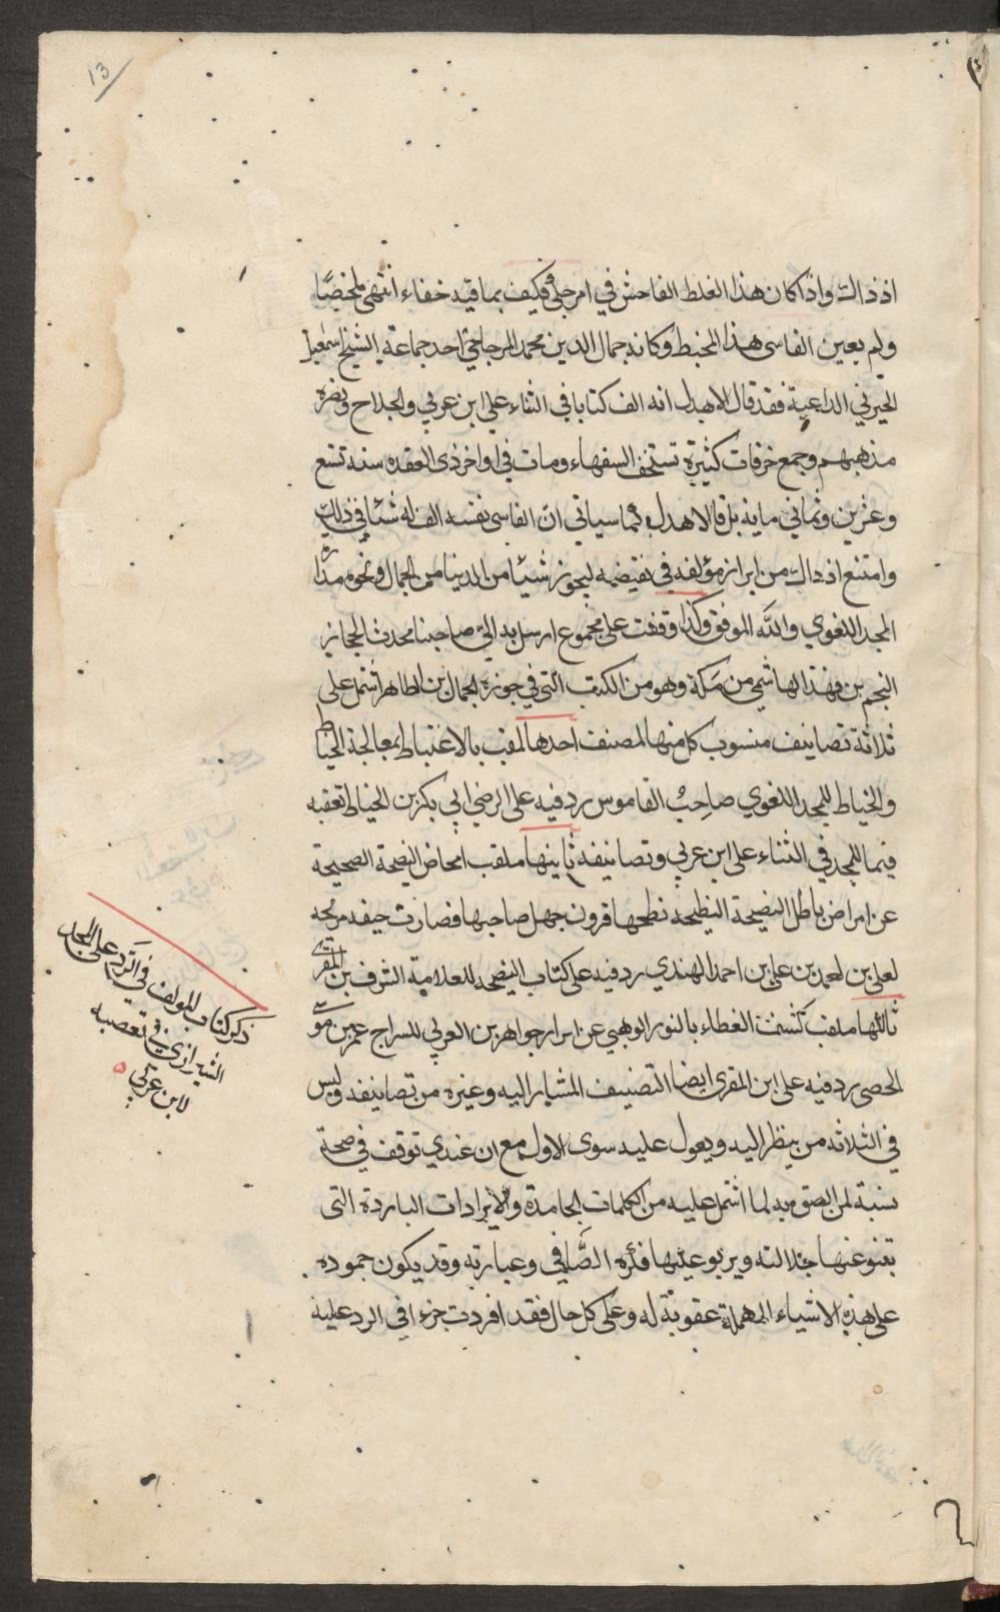 ١٣
اذ ذاك واذا كان هذا الغلط الفاحش في امر جلي فكيف بما فيه خفاء انتهى ملخصًا
ولم يعين الفاسي هذا المخبط وكانه جمال الدين محمد المزجاجي احد جماعة الشيخ اسمعيل
الجبرتي الداعية فقد قال الاهدل انه الف كتابا في الثناء على ابن عربي والحلاج ونصرة
مذهبهم وجمع خرقات كثيرة تستخف السفهاء ومات في اواخر ذي العقده سنة تسع
وعشرين وثماني ماية بل قال الاهدل كما سياتي ان الفاسي نفسه الف له شيئا في ذلك
وامتنع اذ ذاك من ابراز مؤلفه في نقيضه ليحوز شيئا من الدنيا من الجمال ونحوه مداراة
المجد اللغوي والله الموفق وكذا وقفت على مجموع ارسل به الي صاحبنا محدث الحجاز
النجم بن فهد الهاشمي من مكة وهو من الكتب التي في حوزة الجمال بن الطاهر اشتمل على
ثلاثة تصانيف منسوب كل منها لمصنف احدها لمقب بالاغتباط بمعالجة الخياط
والخياط للمجد اللغوي صاحب القاموس رد فيه على الرضي ابي بكر بن الخياط تعقبه
فيما للمجد في الثناء على ابن عربي وتصانيفه ثانيها ملقب امحاض النصحة الصحيحة
عن امراض باطل النصيحة النطيحة نطحها قرون جهل صاحبها فصارت جيفه مريحه
لعلي بن لعمد بن علي بن احمد الهندي رد فيه على كتاب النصيحه للعلامة الشرف بن المقري
ثالثها ملقب كشف الغطاء بالنور الوهبي عن اسرار جواهر بن العربي للسراج عمر بن موسى
الحمصي رد فيه على ابن المقري ايضا التصنيف المشار اليه وغيره من تصانيفه وليس
في الثلاثه من ينظر اليه ويعول عليه سوى الاول مع ان عندي توقف في صحة
نسبة لمن الصق به لما اشتمل عليه من الكلمات الجامدة والايرادات الباردة التي
تنبو عنها جلالته ويربو عليها فكره الصَّافي وعبارته وقد يكون جموده
على هذه الاشياء المهملة عقوبة له وعلى كل حال فقد افردت جزء افي الرد عليه
ذكر كتاب للمولف في الرد على المجد
الشيرازي في تعصبه
لابن عربي